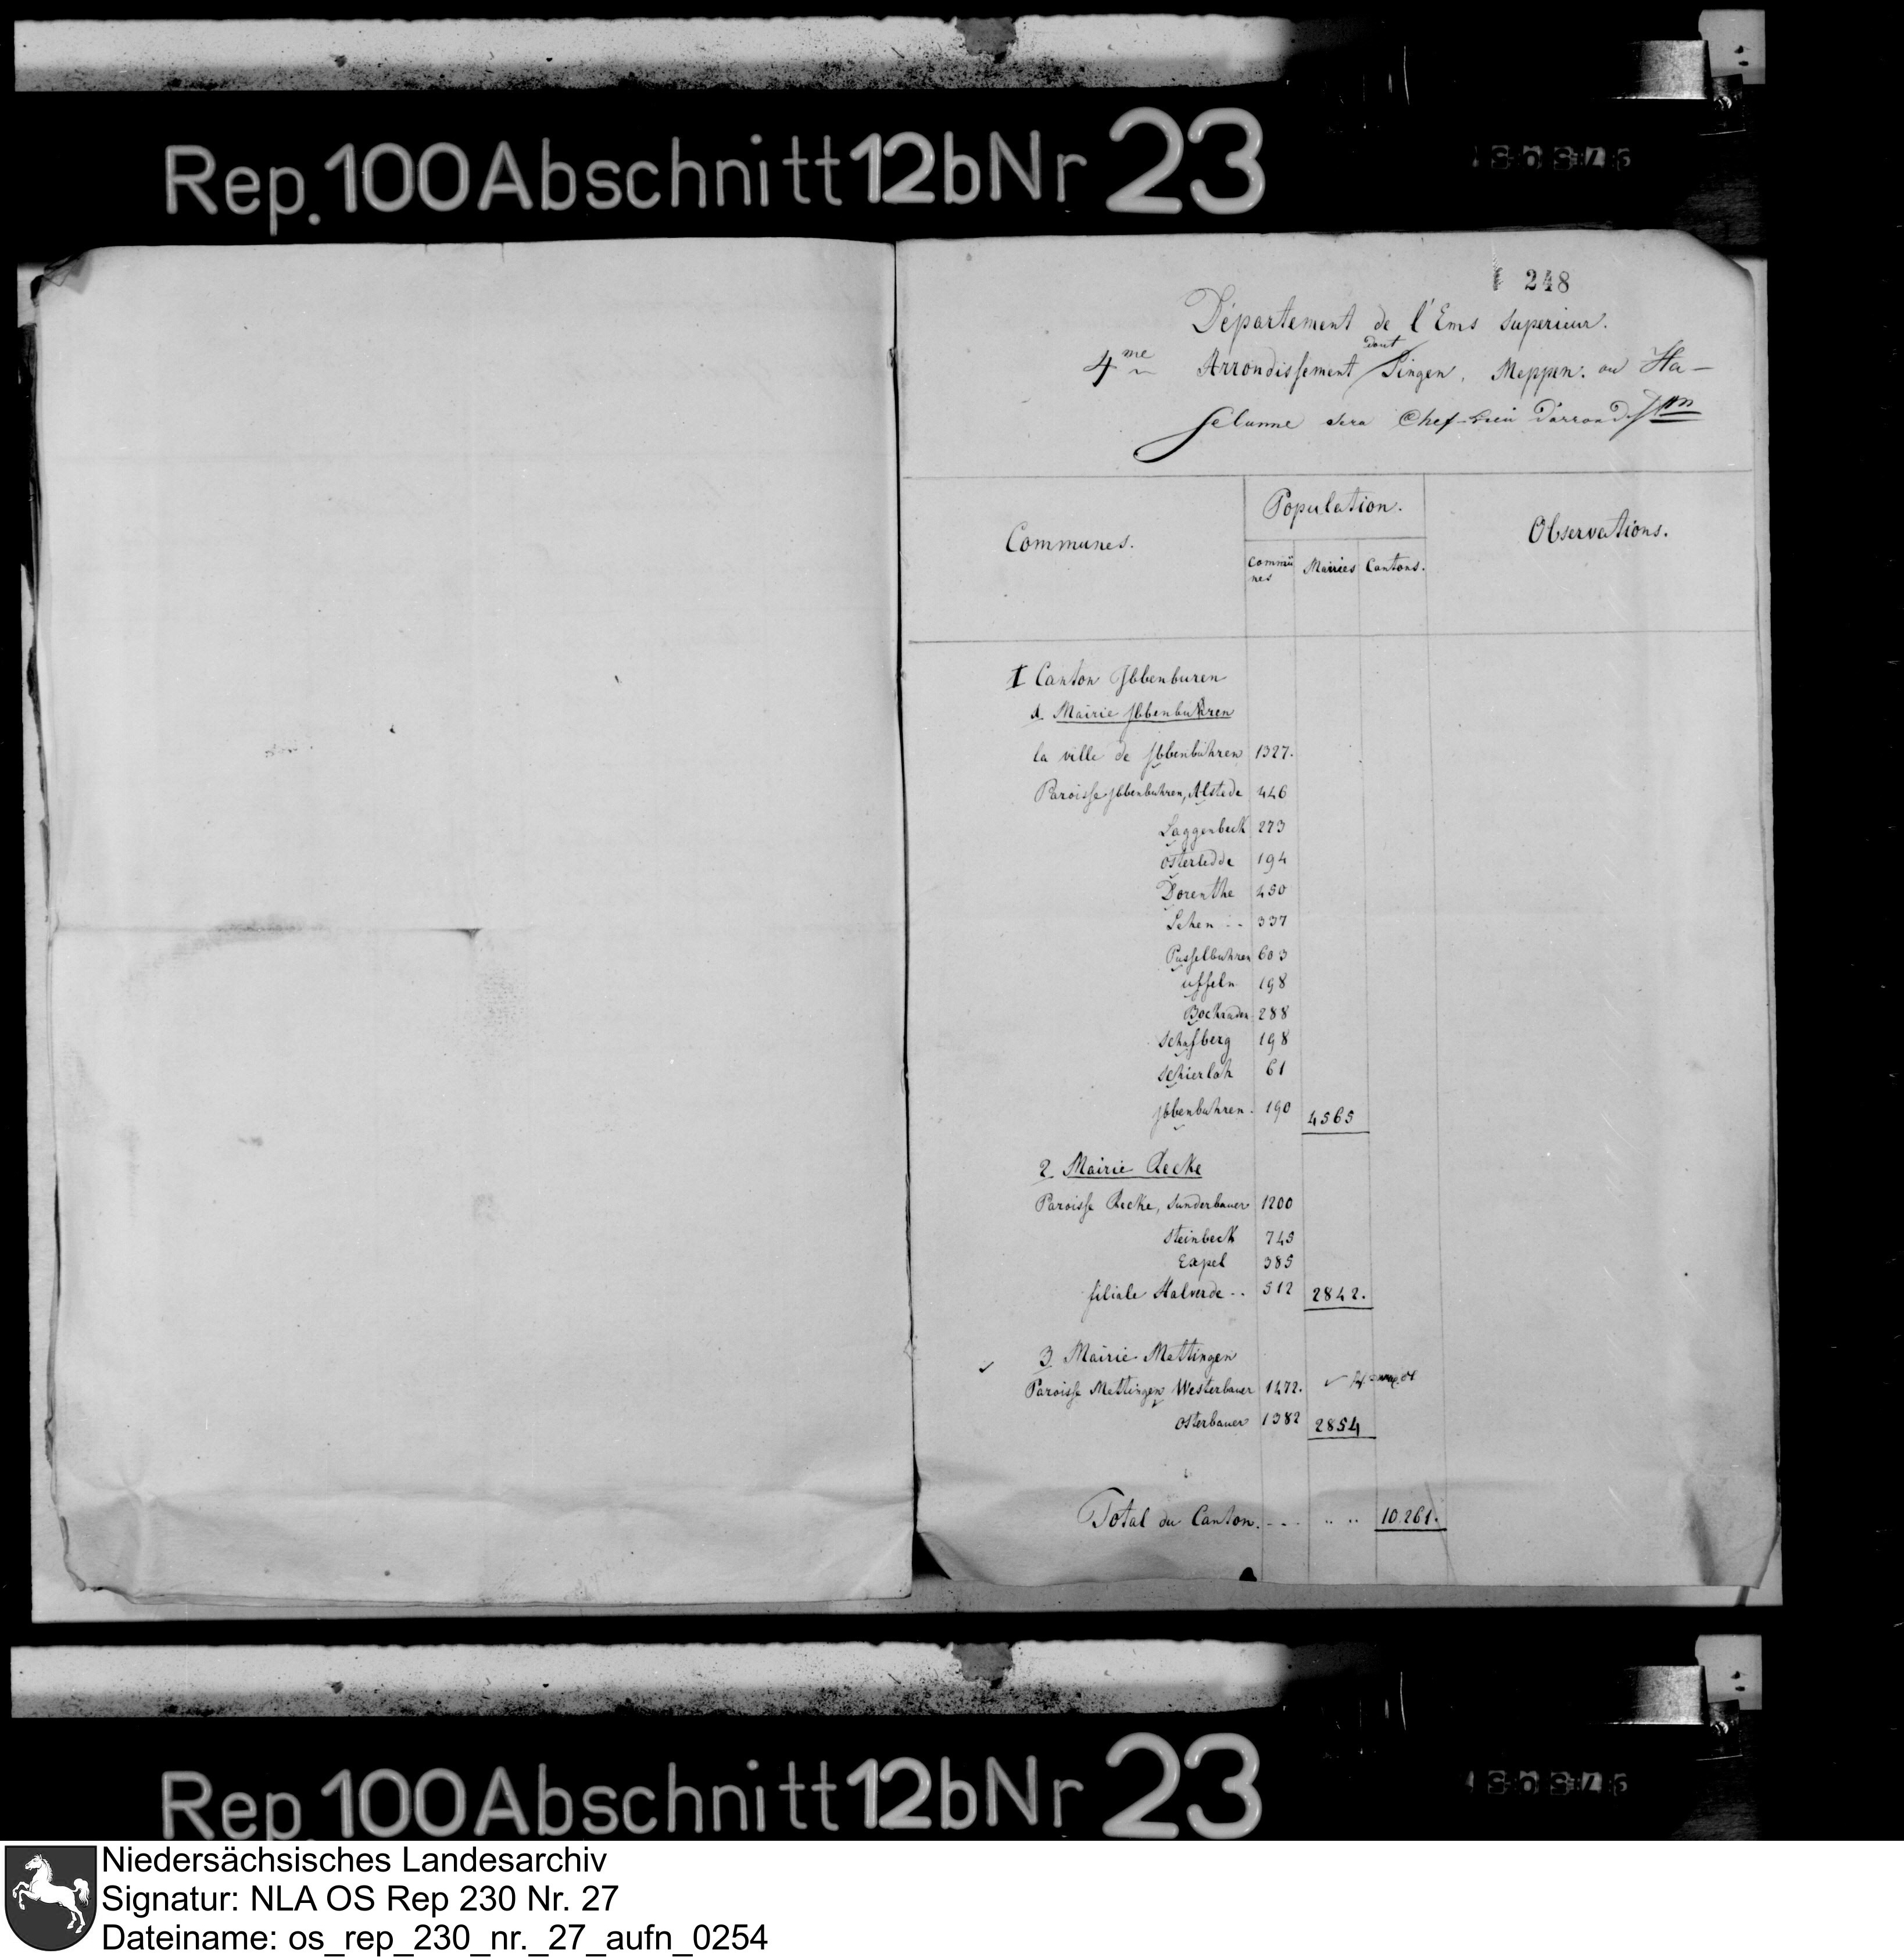 Rep. 100 Abschnitt 12b Nr 23
248
Département de l'Ems Superieur.
4me Arrondissement dont Lingen, Meppen. ou Ha-
selunne sera Chef-Lieu d'arrond
Communes.
Population.
Observations.
Commü
nes
Mairies
Cantons.
I Canton Ibbenburen
1. Mairie Ibbenbuhren
la ville de Ibbenbühren 1327.
Paroisse Ibbenbuhren, Alstede 446
Laggenbeck 273
Osterledde 194
Dorenthe 450
Lehen .. 337
Pusselbuhren 603
Uffeln 198
Bockraden 288
Schafberg 198
Schierloh 61
Ibbenbuhren. 190 4565
2. Mairie Recke
Paroisse Recke, Sunderbauer 1200
Steinbeck 745
Espel 385
filiale Halverde .. 512 2842.
3. Mairie Mettingen
Paroisse Mettingen Westerbauer 1472.
Osterbauer 1382 2854
Total du Canton. - - - .. .. 10261.
Rep. 100 Abschnitt 12b Nr 23
Niedersächsisches Landesarchiv
Signatur: NLA OS Rep 230 Nr. 27
Dateiname: os_rep_230_nr._27_aufn_0254